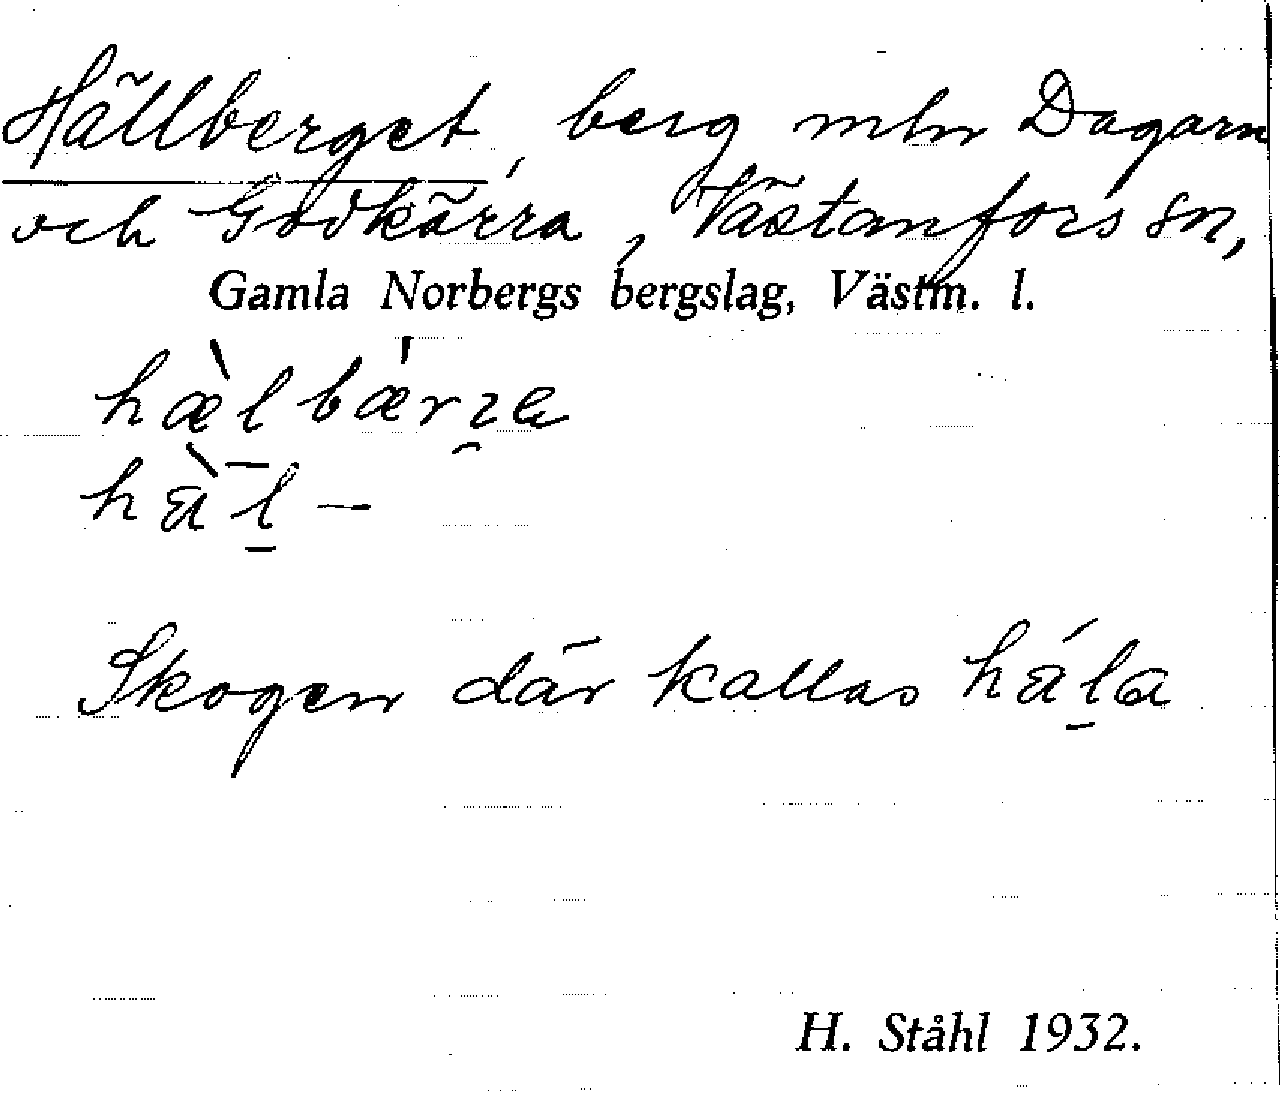 Hällberget, berg mln Dagarn
och Godkärra, Västanfors sn,
Gamla Norbergs bergslag, Västm. l.
hæ̀lbǽrze
hä̀l̠ –
Skogen där kallas hä́l̠a
H. Ståhl 1932.